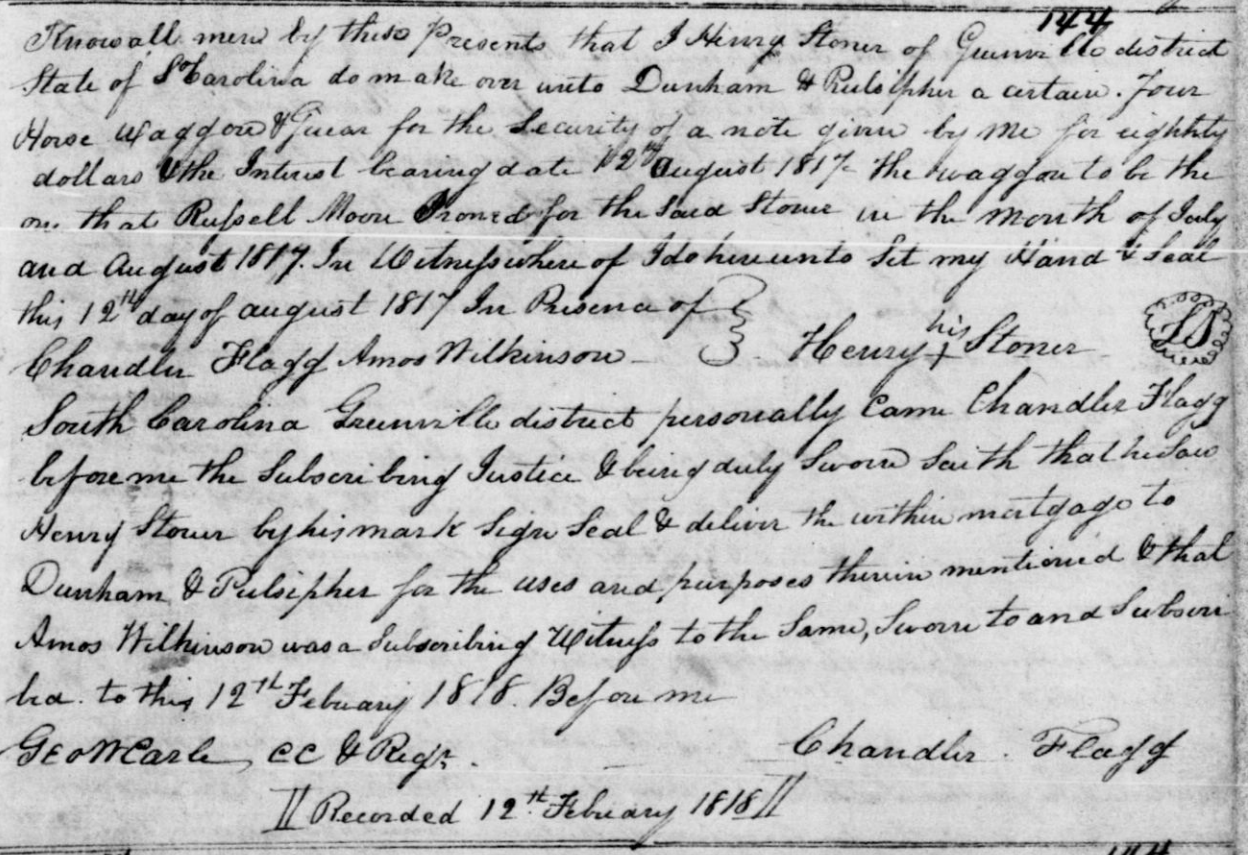 144
Know all men by these Presents that I Henry Stoner of Greenville district
State of So Carolina do make over unto Dunham & Pulsipher a certain Four
Horse Waggon & Guear for the Security of a note given by me for eighty
dollars & the Interest bearing date 12th August 1817 the waggon to be the
one that Russell Moore Ironed for the said Stoner in the month of July
and August 1817. In Witness where of I do hereunto Set my Hand & Seal
this 12th day of august 1817 In Presence of
Chandler Flagg Amos Wilkinson Henry his + Stoner LS
South Carolina Greenville district personally Came Chandler Flagg
before me the Subscribing Justice & being duly Sworn Saith that he Saw
Henry Stoner by his mark Sign Seal & deliver the within mortgage to
Dunham & Pulsipher for the uses and purposes therein mentioned & that
Amos Wilkinson was a Subscribing Witness to the Same, Sworn to and Subscri
bed. to this 12th February 1818. Before me
Geo W Earle, CC & Regr. Chandler Flagg
Recorded 12th February 1818